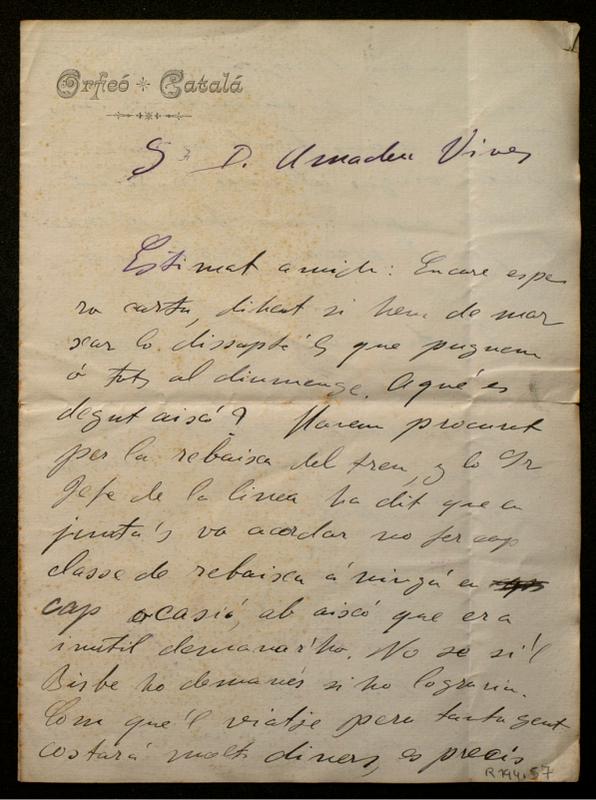 Orfeó Català
S. D. Amadeu Vives
Estimat amich: Encare espe
ro carta, dihent si hem de mar
xar lo dissapte 'ls que puguem
ó tots al diumenge. Aqué es
degut aixó? Havem procurat
per la rebaixa del tren, y lo Sr
Jefe de la linea ha dit que en
junta's va acordar no fer cap
classe de rebaixa á ningú en
cap ocasió, ab aixó que era
inutil demanar'ho. No se si'l
Bisbe ho demanés si ho lograria.
Com que'l viatje pera tanta gent
costará molts diners, es precís
R 194.57